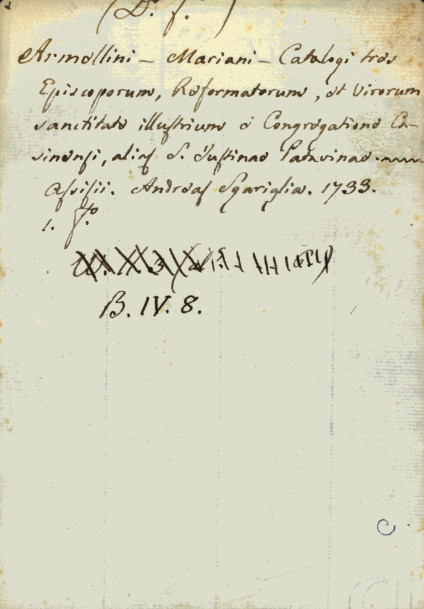 (D. f.)
Armellini – Mariani – Catalogi tres
Episcoporum, Reformatorum, et Virorum
sanctitate illustrium è Congregatione Ca-
sinensi, alias S. Justinae Patavinae.
Assisii. Andreas Sgariglia. 1733.
1. f.º
B. IV. 8.
C.